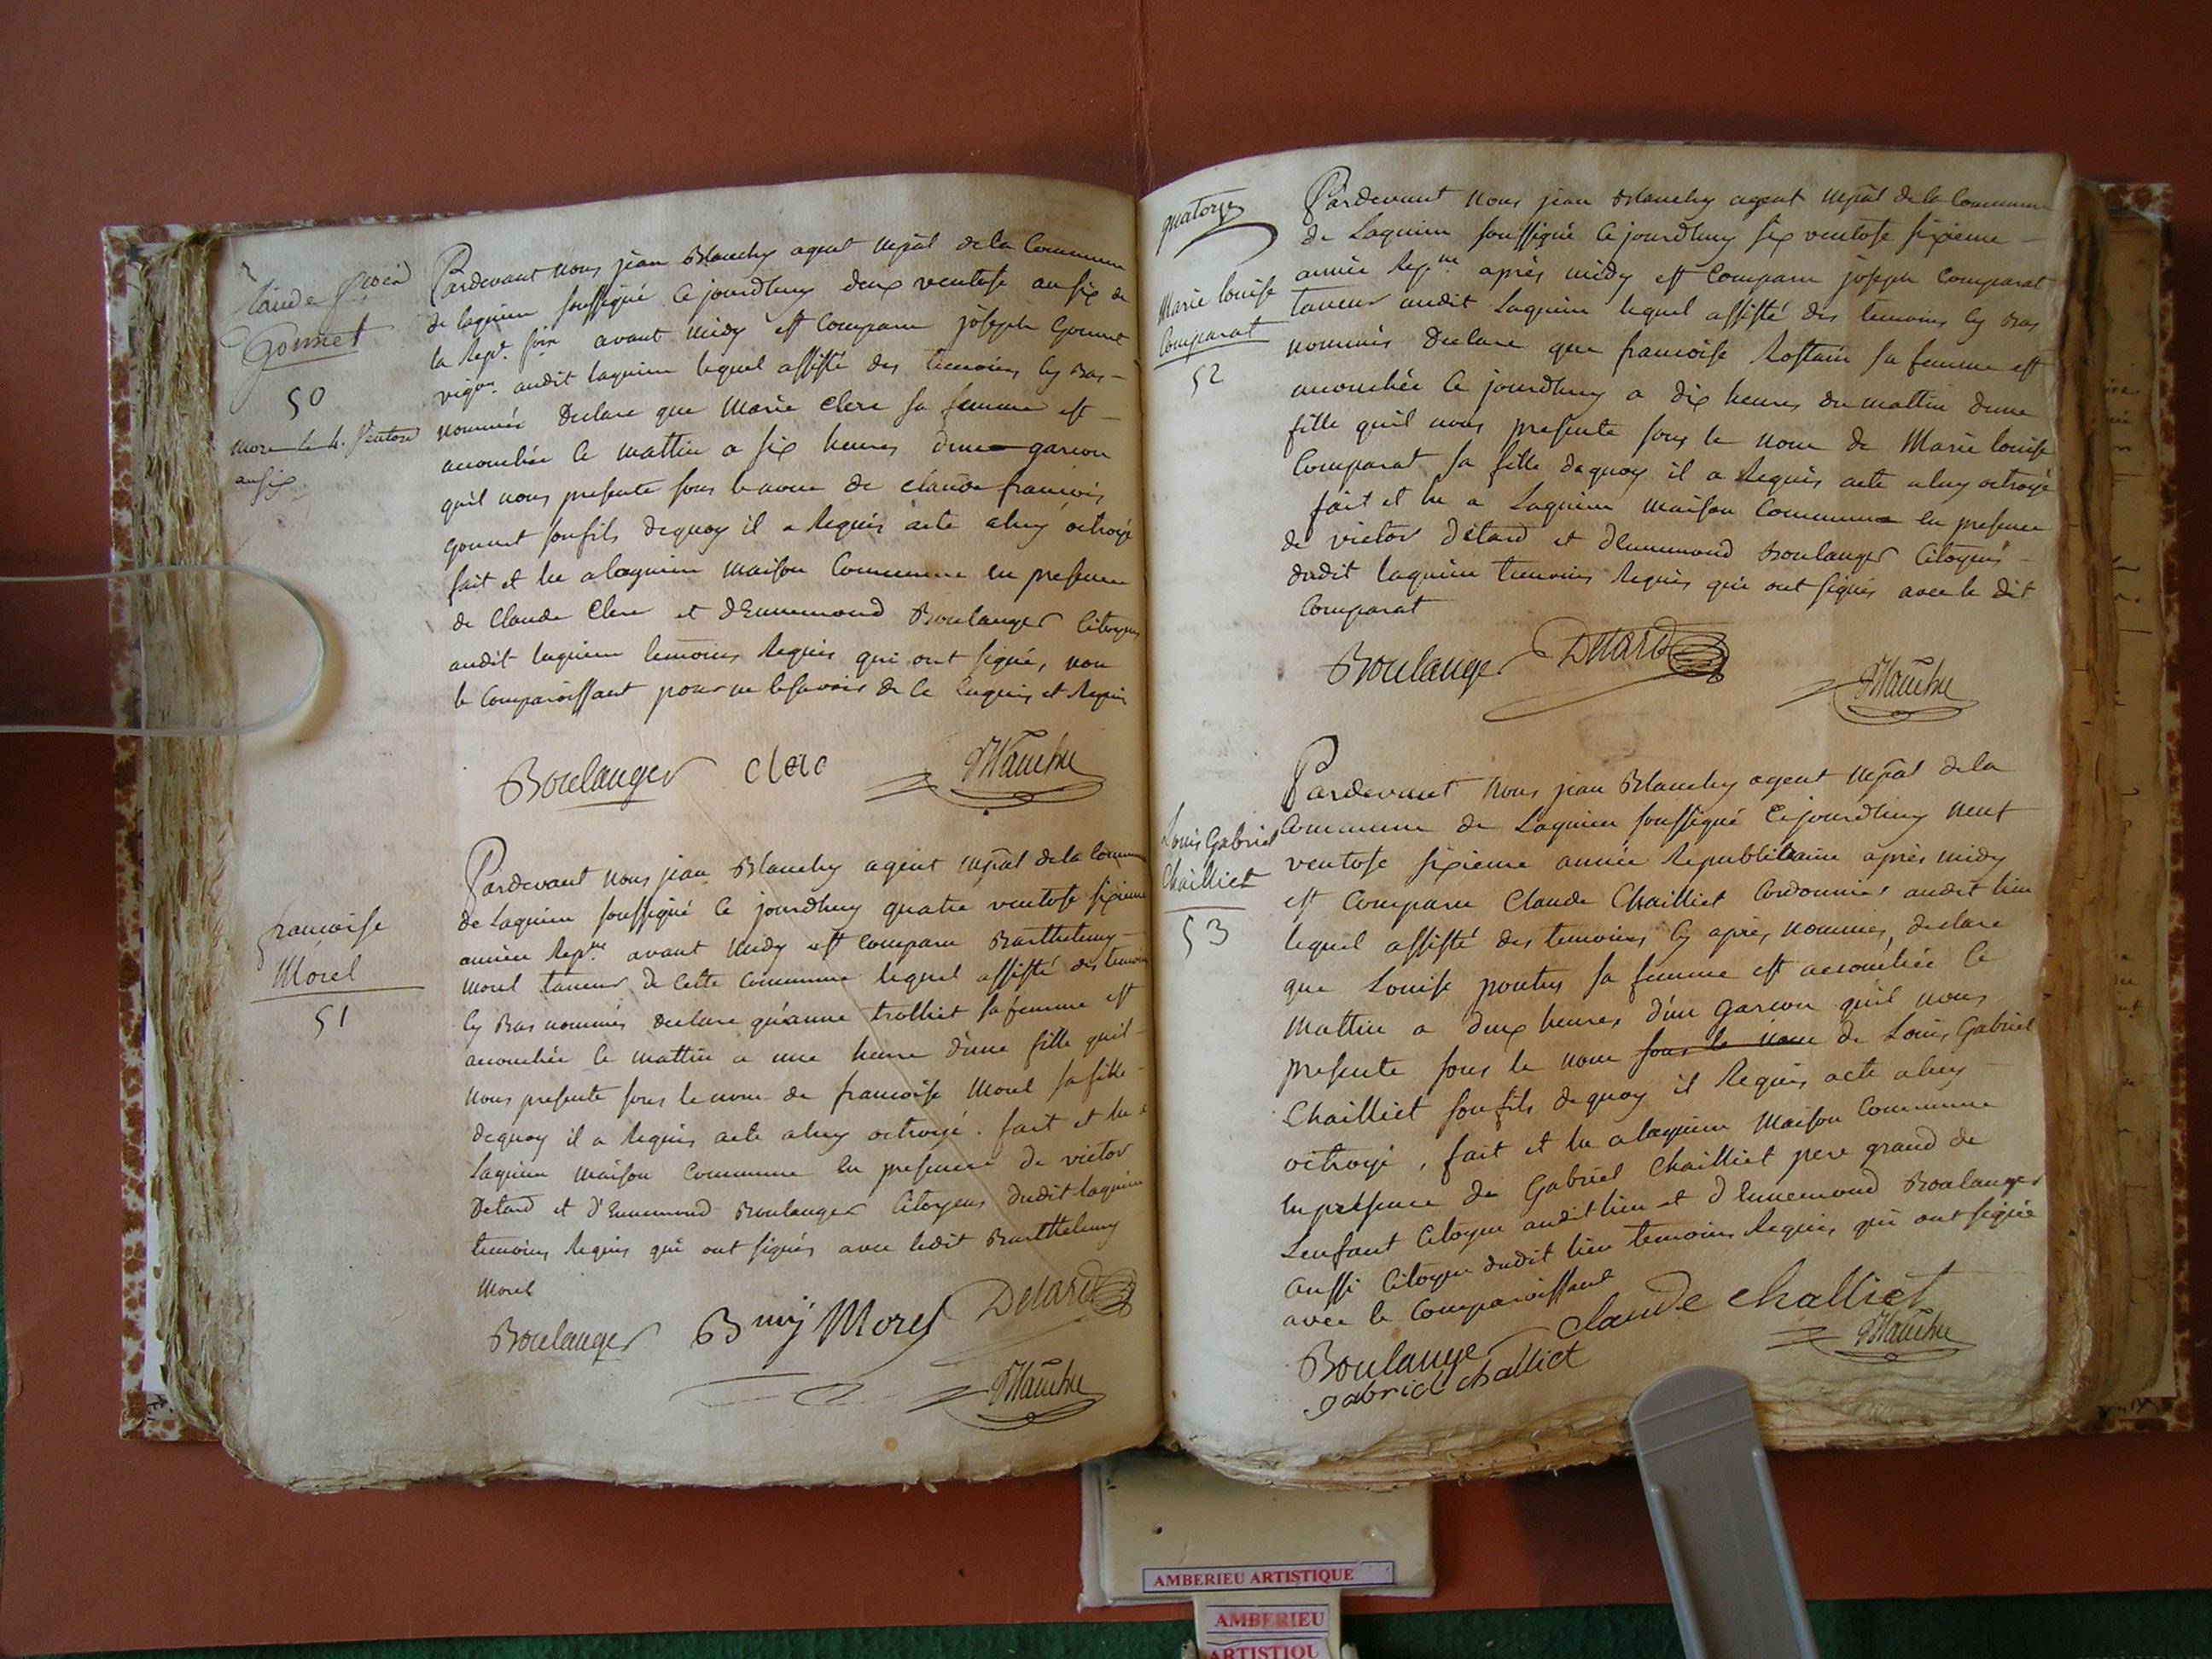 Claude fcois
Gonnet
50
mort le 4. Ventose
an six
Pardevant nous jean Blanchy agent mpal de la Commune
de lagnieu soussigné Ce jourdhuy deux ventose an six de
la Rep.e avant midy est Comparu joseph Gonnet
vign.on audit lagnieu lequel assisté des temoins Cy Bas
nommés Declare que Marie Clerc sa femme est
accouchée Ce mattin a six heures dun garcon
quil nous presente sous le nom de claude francois
gonnet son fils dequoy il a Requis acte aluy octroyé
fait et lu a lagnieu maison Commune en presence
de Claude Clerc et dEnnemond Boulanger Citoyens
audit lagnieu temoins Requis qui ont signé, non
le Comparoissant pour ne le savoir de Ce Enquis et Requis
Boulanger clerc Blanchy
francoise
Morel
51
Pardevant nous jean Blanchy agent mpal de la Commune
de Lagnieu soussigné Ce jourdhuy quatre ventose sixieme
année Rep.ne avant midy est Comparu Barthelemy
morel taneur de Cette Commune lequel assisté des temoins
Cy Bas nommés Declare qu'anne trolliet sa femme est
accouchée Ce mattin a une heure d'une fille quil
nous presente sous le nom de francoise Morel sa fille
dequoy il a Requis acte aluy octroyé. fait et lu a
Lagnieu maison Commune en presence de victor
Detard et d'Ennemond Boulanger Citoyens dudit lagnieu
temoins Requis qui ont signés avec ledit Barthelemy
Morel
Boulanger Bmy Morel Detard
Blanchy
quatorze
Marie louise
Comparat
52
Pardevant nous jean Blanchy agent mpal de la Commune
de Lagnieu soussigné Ce jourdhuy six ventose sixieme
année Rep.ne après midy est Comparu joseph Comparat
taneur audit Lagnieu lequel assisté des temoins Cy Bas
nommés Declare que francoise Rostain sa femme est
accouchée Ce jourdhuy a dix heures du mattin dune
fille quil nous presente sous le nom de Marie louise
Comparat sa fille dequoy il a Requis acte aluy octroyé
fait et lu a Lagnieu maison Commune en presence
de victor Detard et dEnnemond Boulanger Citoyens
dudit lagnieu temoins Requis qui ont signés avec le dit
Comparat
Boulanger Detard Blanchy
Louis Gabriel
Chailliet
53
Pardevant Nous jean Blanchy agent mpal de la
Commune de Lagnieu soussigné Cejourdhuy neuf
ventose sixieme année Republicaine après midy
est Comparu Claude Chailliet Cordonnier audit lieu
lequel assisté des temoins Cy après nommés, declare
que Louise pontus sa femme est accouchée Ce
mattin a deux heures d'un garcon qu'il nous
presente sous le nom sous le nom de Louis Gabriel
Chailliet son fils dequoy il Requis acte aluy
octroyé, fait et lu a lagnieu Maison Commune
en presence de Gabriel Chailliet pere grand de
Lenfant Citoyen audit lieu et d'Ennemond Boulanger
aussi Citoyen dudit lieu temoins Requis, qui ont signé
avec le Comparoissant
Boulanger claude challiet
gabriel challiet Blanchy
AMBERIEU ARTISTIQUE
AMBERIEU
ARTISTIQU